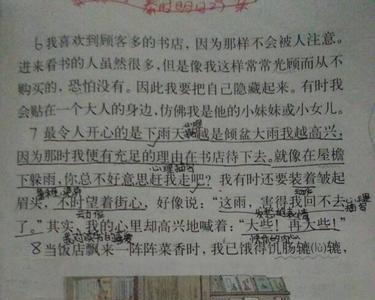 6 我喜欢到顾客多的书店，因为那样不会被人注意。
进来看书的人虽然很多，但是像我这样常常光顾而从不
购买的，恐怕没有。因此我要把自己隐藏起来。有时我
会贴在一个大人的身边，仿佛我是他的小妹妹或小女儿。
心理
7 最令人开心的是下雨天，越是倾盆大雨我越高兴，
因为那时我便有充足的理由在书店待下去。就像在屋檐
心理描写
下躲雨，你总不好意思赶我走吧？我有时还要装着皱起
动作
心理
眉头，不时望着街心，好像说：“这雨，害得我回不去
了。”其实，我的心里却高兴地喊着：“大些！再大些！”
8 当饭店飘来一阵阵菜香时，我已饿得饥肠辘(lù)辘，